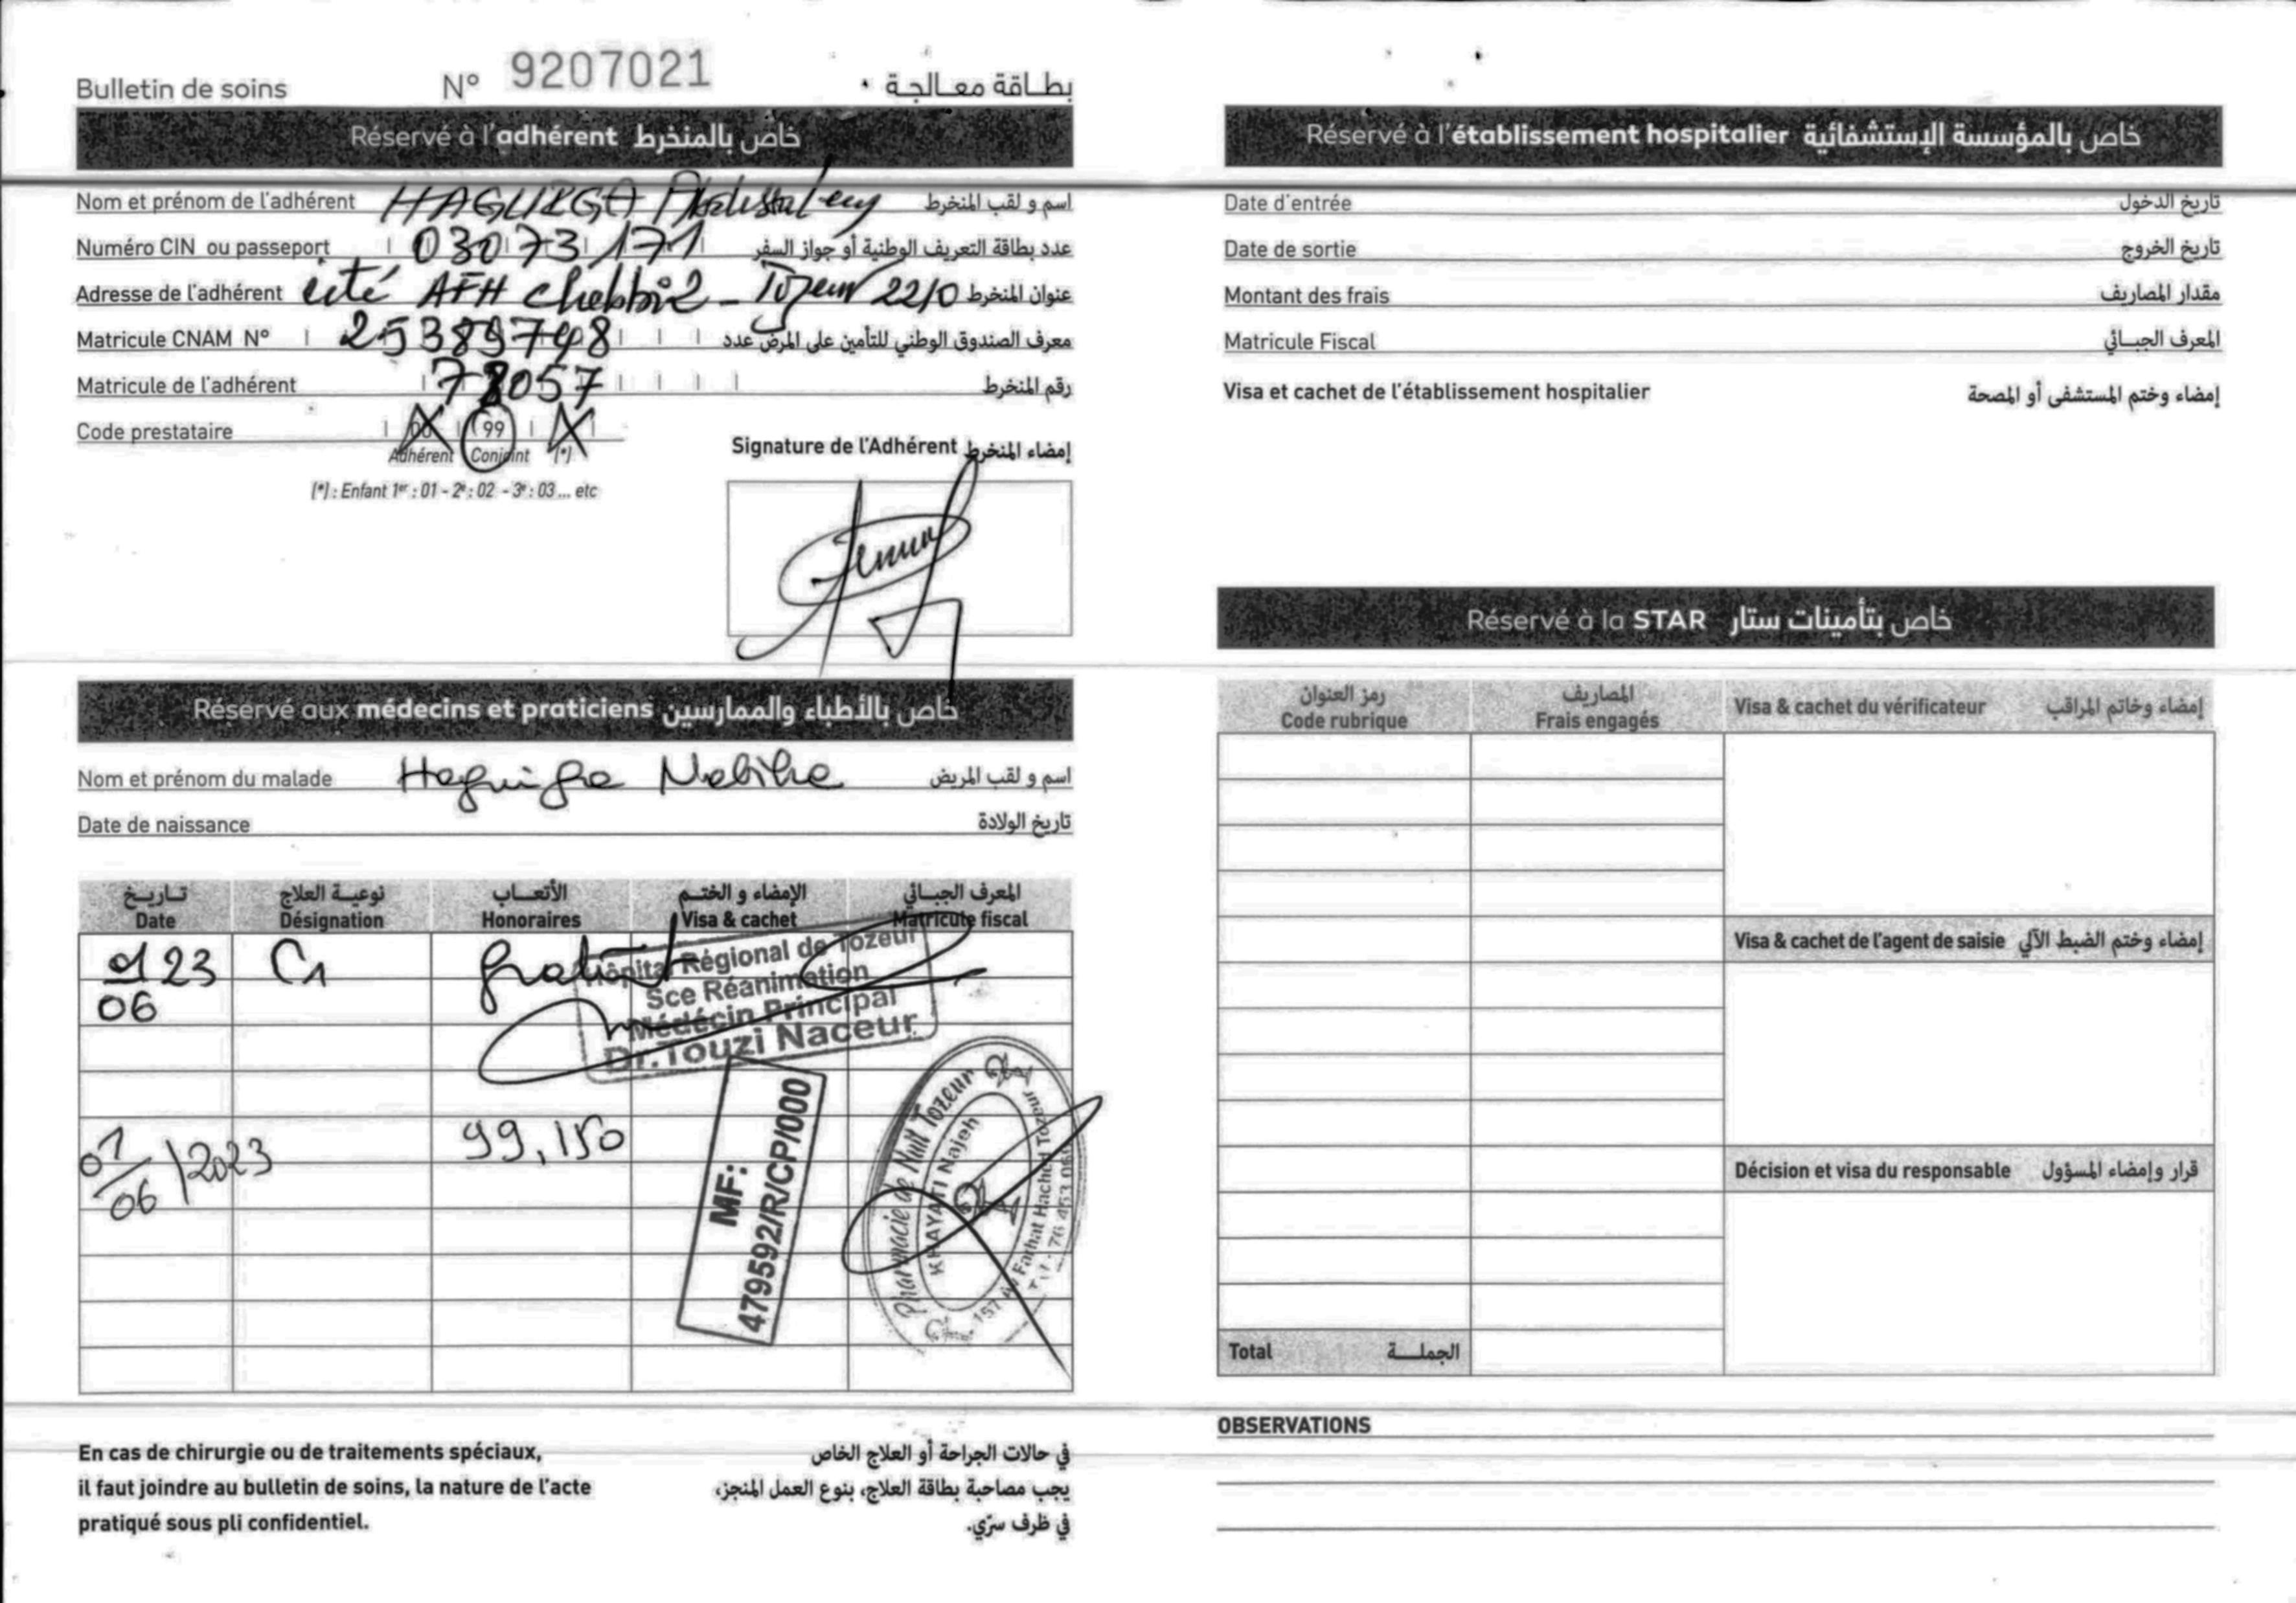 Bulletin de soins N° 9207021 بطاقة معالجة
Réservé à l'adhérent خاص بالمنخرط
Nom et prénom de l'adhérent HAGUIGA اسم و لقب المنخرط
Numéro CIN ou passeport 03073171 عدد بطاقة التعريف الوطنية أو جواز السفر
Adresse de l'adhérent cité AFH Chebbi2 - Tozeur 2210 عنوان المنخرط
Matricule CNAM N° 253897498 معرف الصندوق الوطني للتأمين على المرض عدد
Matricule de l'adhérent 78057 رقم المنخرط
Code prestataire 00 99
Adhérent Conjoint (*)
(*) : Enfant 1er : 01 - 2e : 02 - 3e : 03 ... etc
Signature de l'Adhérent إمضاء المنخرط
Réservé aux médecins et praticiens خاص بالأطباء والممارسين
Nom et prénom du malade Haguiga Nabiha اسم و لقب المريض
Date de naissance تاريخ الولادة
تاريخ نوعية العلاج الأتعاب الإمضاء و الختم المعرف الجبائي
Date Désignation Honoraires Visa & cachet Matricule fiscal
23 C1 gratuit
06
Hôpital Régional de Tozeur
Sce Réanimation
Médécin Principal
Dr. Touzi Naceur
01/06/2023 99,150
MF:
479592/R/CP/000
Pharmacie de Nuit Tozeur
KHAYATI Najeh
157 Av Farhat Hached Tozeur
En cas de chirurgie ou de traitements spéciaux,
il faut joindre au bulletin de soins, la nature de l'acte
pratiqué sous pli confidentiel.
في حالات الجراحة أو العلاج الخاص
يجب مصاحبة بطاقة العلاج، بنوع العمل المنجز،
في ظرف سرّي.
Réservé à l'établissement hospitalier خاص بالمؤسسة الإستشفائية
Date d'entrée تاريخ الدخول
Date de sortie تاريخ الخروج
Montant des frais مقدار المصاريف
Matricule Fiscal المعرف الجبائي
Visa et cachet de l'établissement hospitalier إمضاء وختم المستشفى أو المصحة
Réservé à la STAR خاص بتأمينات ستار
رمز العنوان المصاريف
Code rubrique Frais engagés Visa & cachet du vérificateur إمضاء وخاتم المراقب
Visa & cachet de l'agent de saisie إمضاء وختم الضبط الآلي
Décision et visa du responsable قرار وإمضاء المسؤول
Total الجملة
OBSERVATIONS